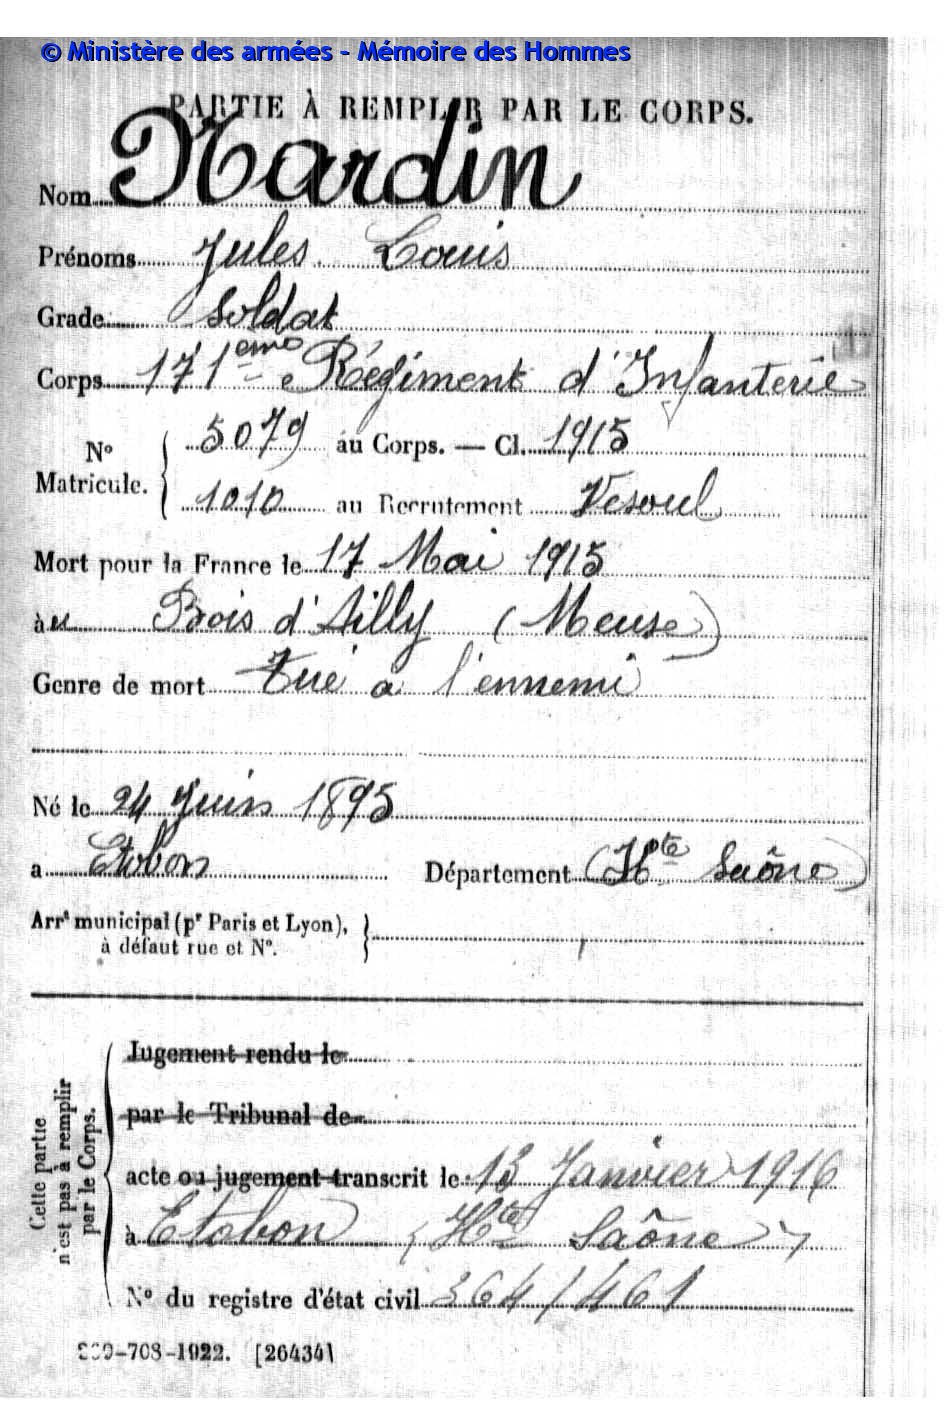 © Ministère des armées - Mémoire des Hommes
PARTIE À REMPLIR PAR LE CORPS.
Nom Nardin
Prénoms Jules Louis
Grade Soldat
Corps 171eme Régiment d'Infanterie
N° Matricule. { 5079 au Corps. — Cl. 1915
1010 au Recrutement Vesoul
Mort pour la France le 17 Mai 1915
à u Bois d'Ailly (Meuse)
Genre de mort Tué a l'ennemi
Né le 24 Juin 1895
a Etobon Département (Hte Saône)
Arrt municipal (pr Paris et Lyon),
à défaut rue et N°.
Cette partie
n'est pas à remplir
par le Corps.
Jugement rendu le
par le Tribunal de
acte ou jugement transcrit le 13 Janvier 1916
à Etobon (Hte Saône)
N° du registre d'état civil 364/461
-708-1922. [26434]